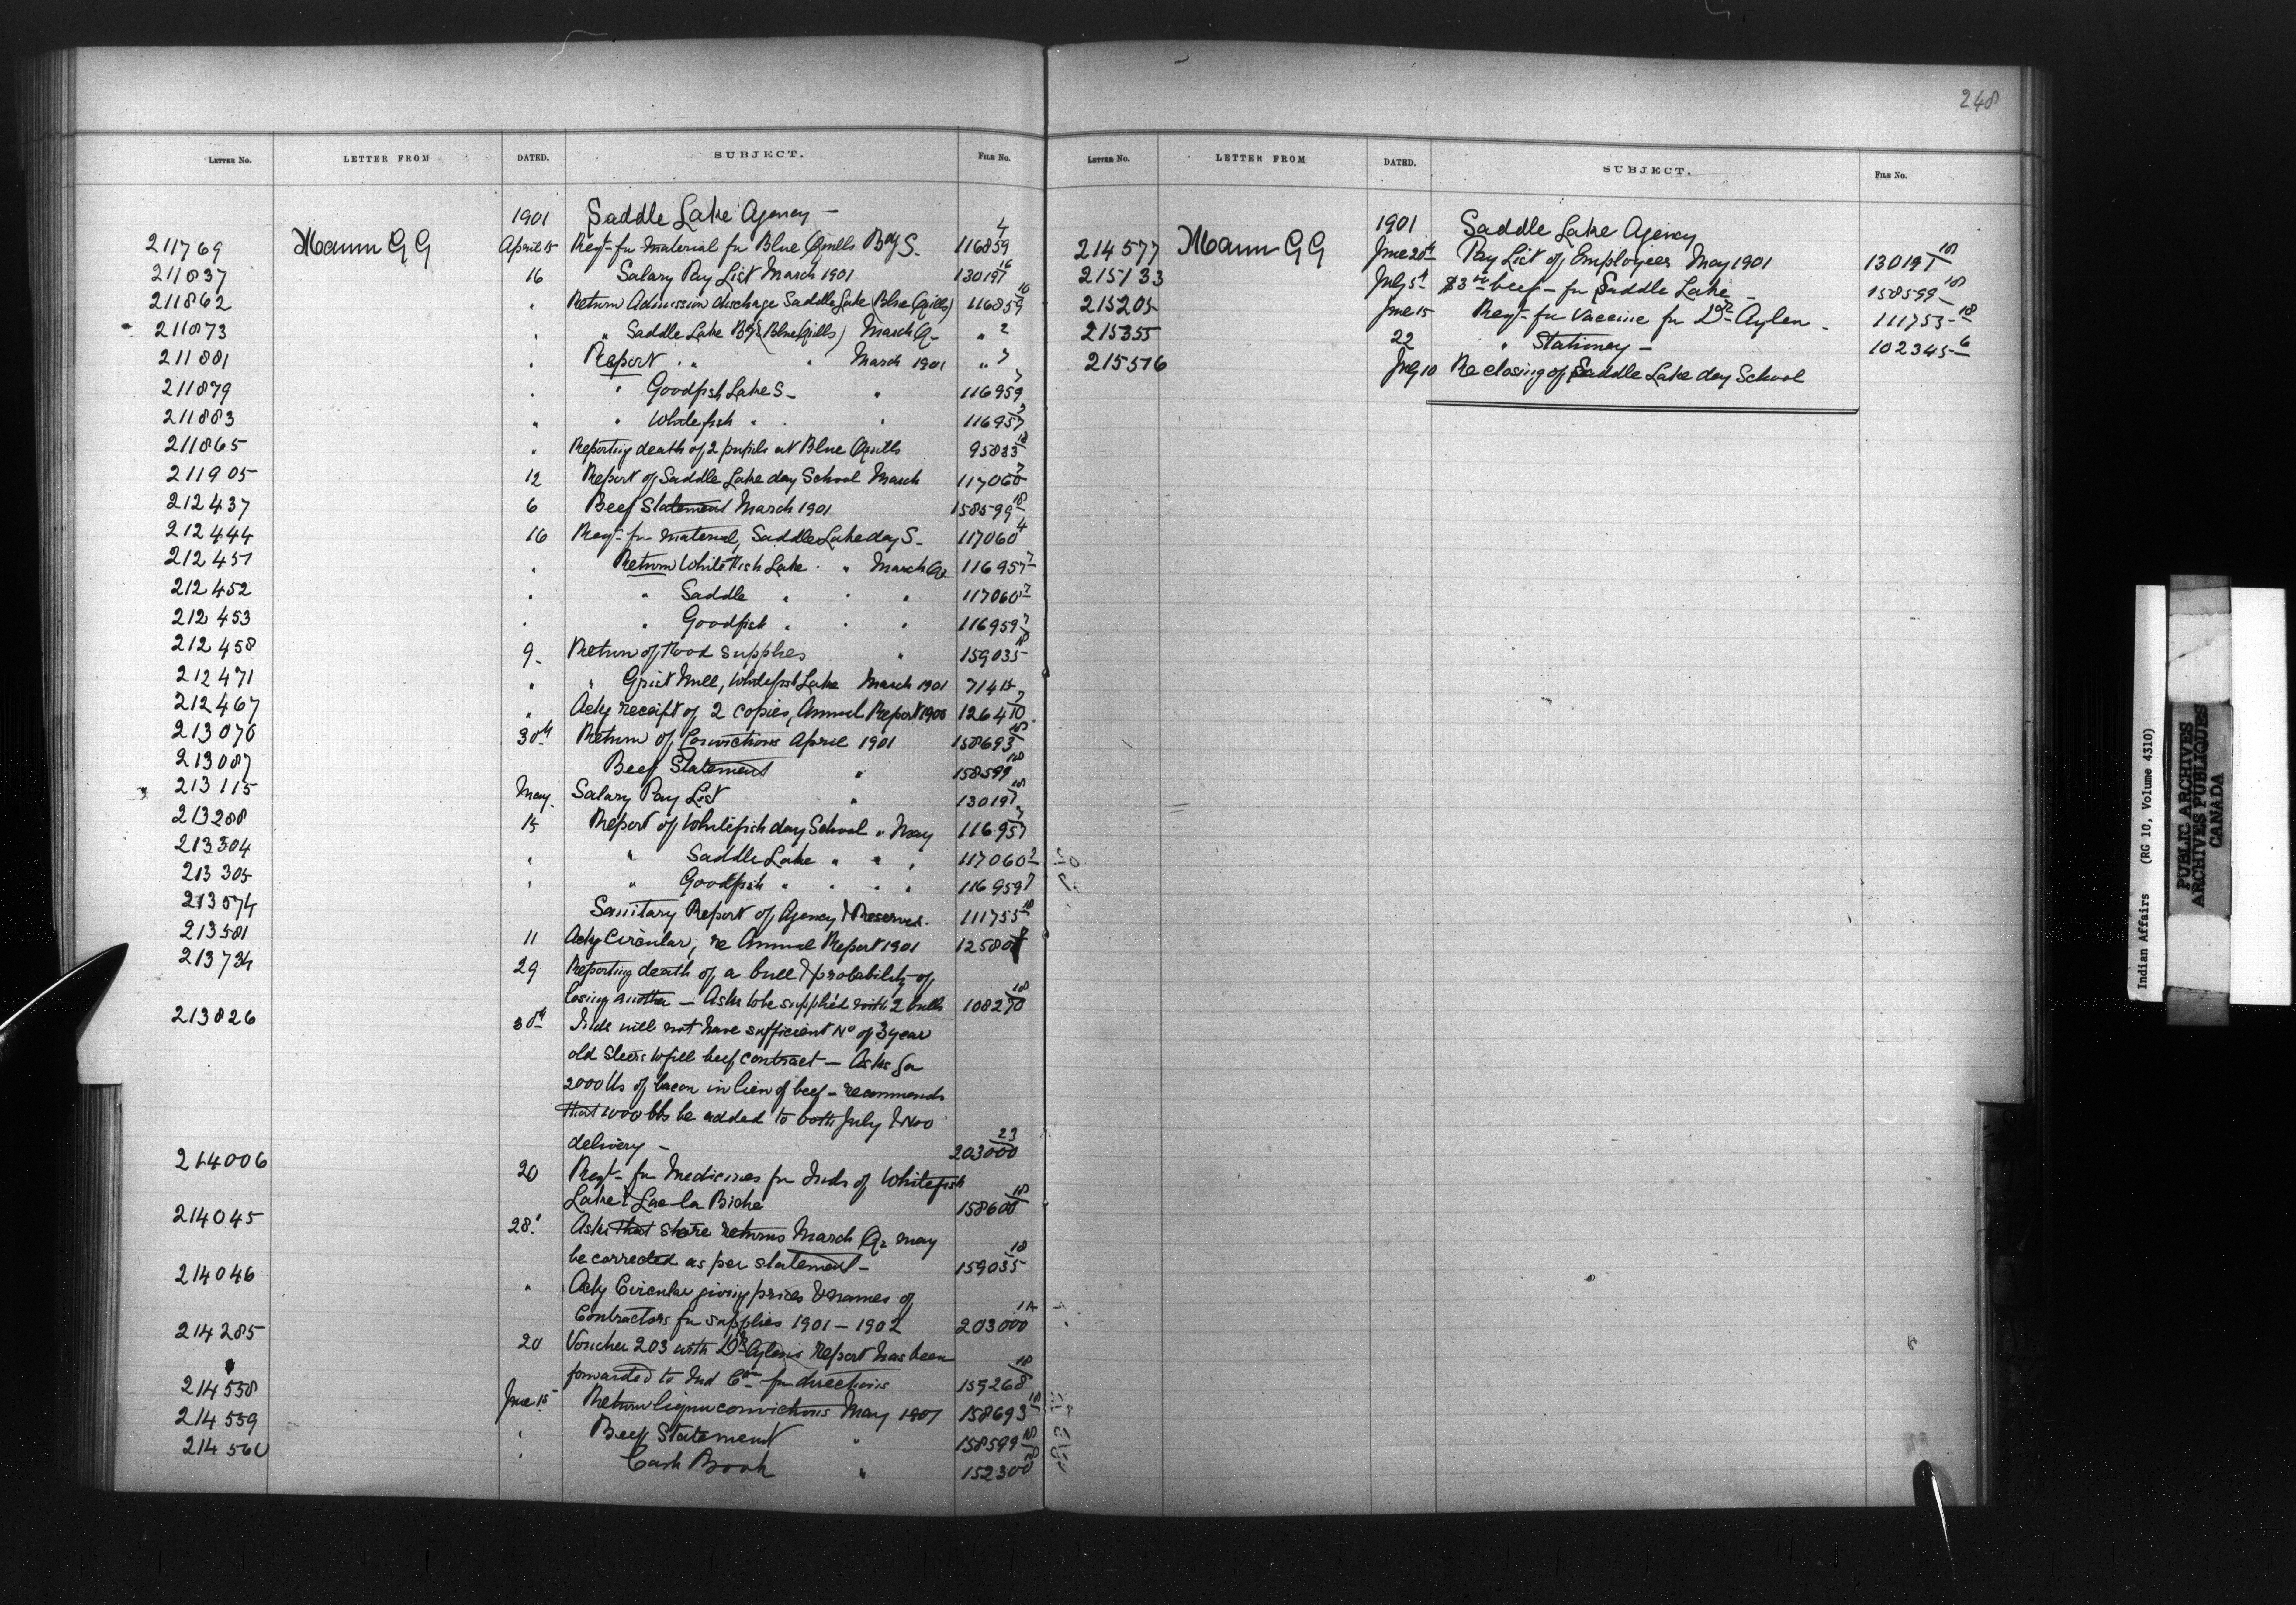 248
LETTER NO. LETTER FROM DATED. SUBJECT. FILE NO.
1901 Saddle Lake Agency —
211769 Mann G G April 15 Reqt- for material for Blue Quills Bdg S. 116859 4
211837 16 Salary Pay List March 1901 130197 16
211862 " Return Admission discharge Saddle Lake (Blue Quills) 116859 10
211873 " " Saddle Lake Bdg S (Blue Quills) March Q- " 2
211881 " Report " " " March 1901 " 7
211879 " " Goodfish Lake S- " 116959 7
211883 " " Whitefish " " " 116957
211865 " Reporting death of 2 pupils at Blue Quills 95833 18
211905 12 Report of Saddle Lake day School March 117060 7
212437 6 Beef Statement March 1901 158599 18
212444 16 Reqt- for material, Saddle Lake day S- 117060 4
212451 " Return White Fish Lake " " March Qr 116957 7
212452 " " Saddle " " " 117060 7
212453 " " Goodfish " " " 116959 7
212458 9- Return of Food Supplies " 159035 18
212471 " " Grist Mill, Whitefish Lake March 1901 71415
212467 " Ackg receipt of 2 copies, Annual Report 1900 126410
213076 30th Return of Convictions April 1901 158693 18
213087 Beef Statement " 158599 18
213115 May Salary Pay List " 130197 18
213288 15 Report of Whitefish day School " May 116957 7
213304 " " Saddle Lake " " " 117060 7
213305 " " Goodfish " " " " 116959 7
213574 Sanitary Report of Agency & Reserves. 111755 18
213581 11 Ackg Circular, re Annual Report 1901
213734 29 Reporting death of a bull & probability of
losing another — Asks to be supplied with 2 bulls 108270 18
213826 30th Inds will not have sufficient No of 3 year
old Steers to fill beef contract — Asks for
2000 lbs of bacon in lieu of beef - recommends
that 1000 lbs be added to both July & Nov
delivery — 203000 23
214006 20 Reqt- for Medicines for Inds of Whitefish
Lake & Lac la Biche 158600 18
214045 28th Asks that store returns March Qr may
be corrected as per statement — 159035 18
214046 " Ackg Circular giving prices & names of
Contractors for supplies 1901 — 1902 203000 14
214285 20 Voucher 203 with Dr Aylen's report has been
forwarded to Ind Com for directions 159268 18
214558 June 15 Return liquor convictions May 1901 158693 18
214559 " Beef Statement " 158599 18
214560 " Cash Book " 152300 18
LETTER NO. LETTER FROM DATED. SUBJECT. FILE NO.
1901 Saddle Lake Agency
214577 Mann G G June 20th Pay List of Employees May 1901 130197 18
215133 July 5th beef - for Saddle Lake — 158599 18
215205 June 15 Reqt- for Vaccine for Dr Aylen - 111755 18
215355 22 " Stationery — 102345 6
215516 July 10 Re closing of Saddle Lake day School
Indian Affairs (RG 10, Volume 4310)
PUBLIC ARCHIVES
ARCHIVES PUBLIQUES
CANADA